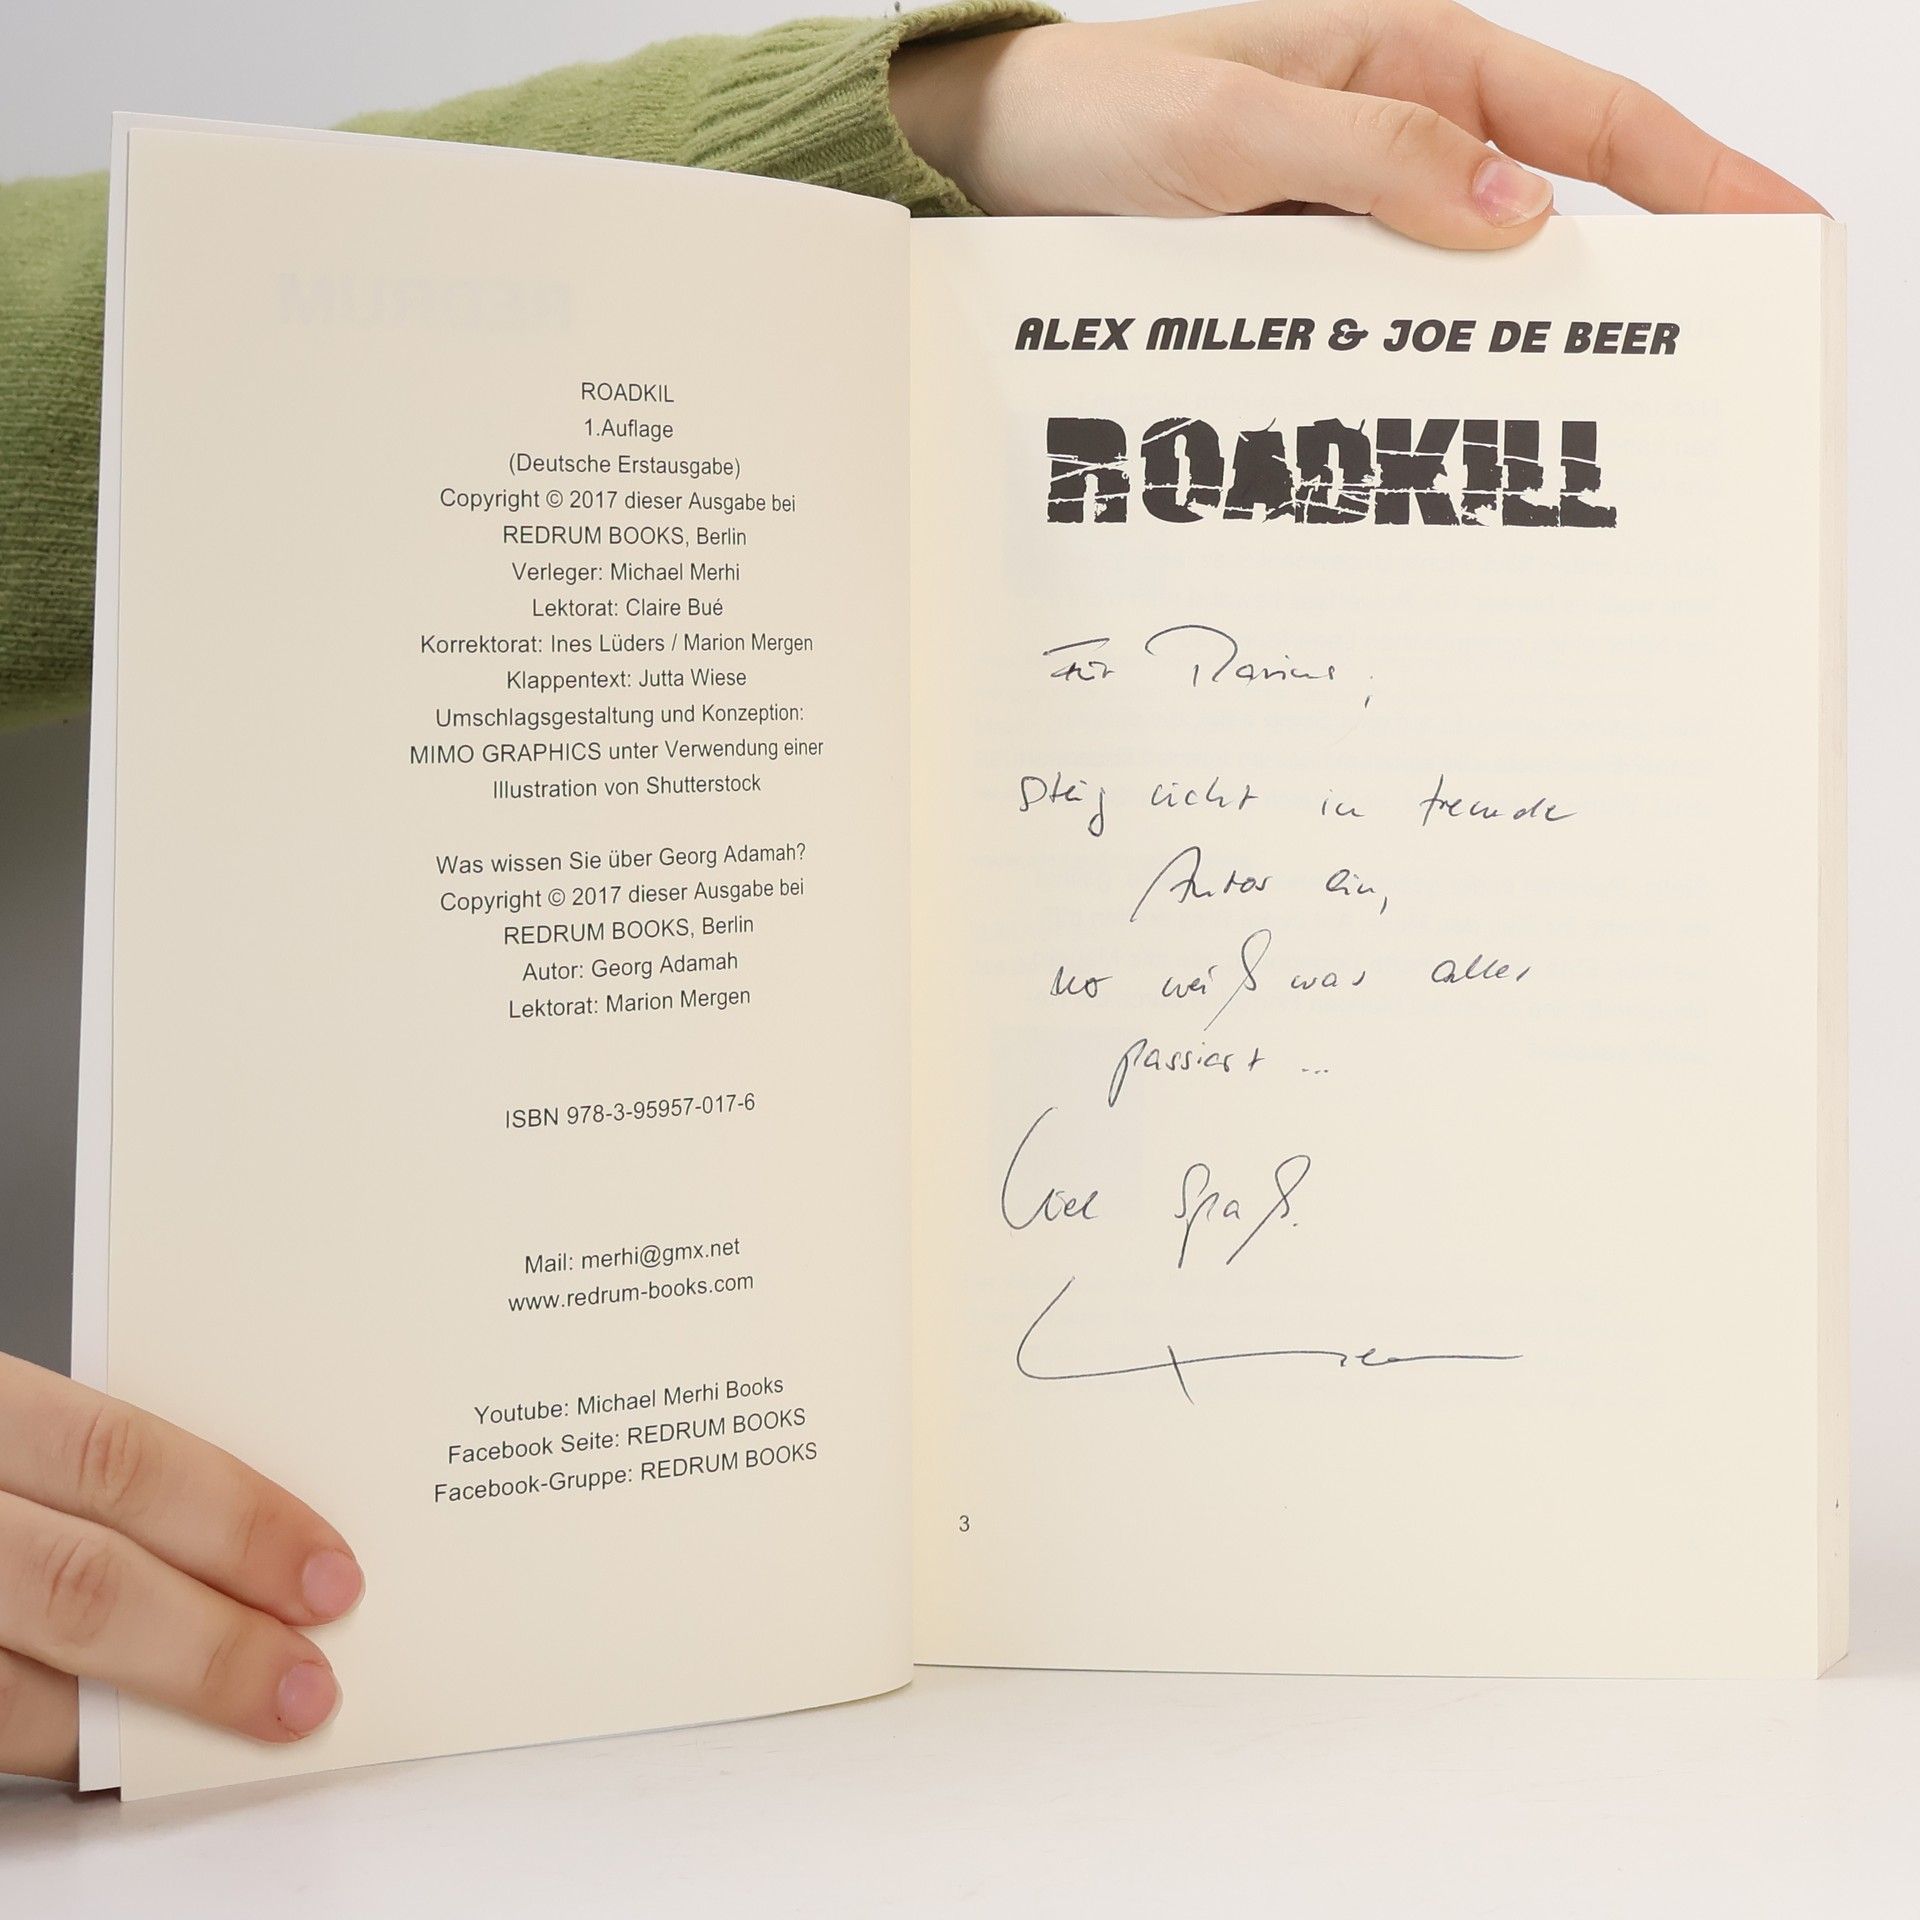 ROADKIL
1.Auflage
(Deutsche Erstausgabe)
Copyright © 2017 dieser Ausgabe bei
REDRUM BOOKS, Berlin
Verleger: Michael Merhi
Lektorat: Claire Bué
Korrektorat: Ines Lüders / Marion Mergen
Klappentext: Jutta Wiese
Umschlagsgestaltung und Konzeption:
MIMO GRAPHICS unter Verwendung einer
Illustration von Shutterstock
Was wissen Sie über Georg Adamah?
Copyright © 2017 dieser Ausgabe bei
REDRUM BOOKS, Berlin
Autor: Georg Adamah
Lektorat: Marion Mergen
ISBN 978-3-95957-017-6
Mail: merhi@gmx.net
www.redrum-books.com
Youtube: Michael Merhi Books
Facebook Seite: REDRUM BOOKS
Facebook-Gruppe: REDRUM BOOKS
ALEX MILLER & JOE DE BEER
ROADKILL
Für Marius,
Steig nicht in fremde
Autos ein,
wo weiß was alles
passiert ...
Viel Spaß.
3